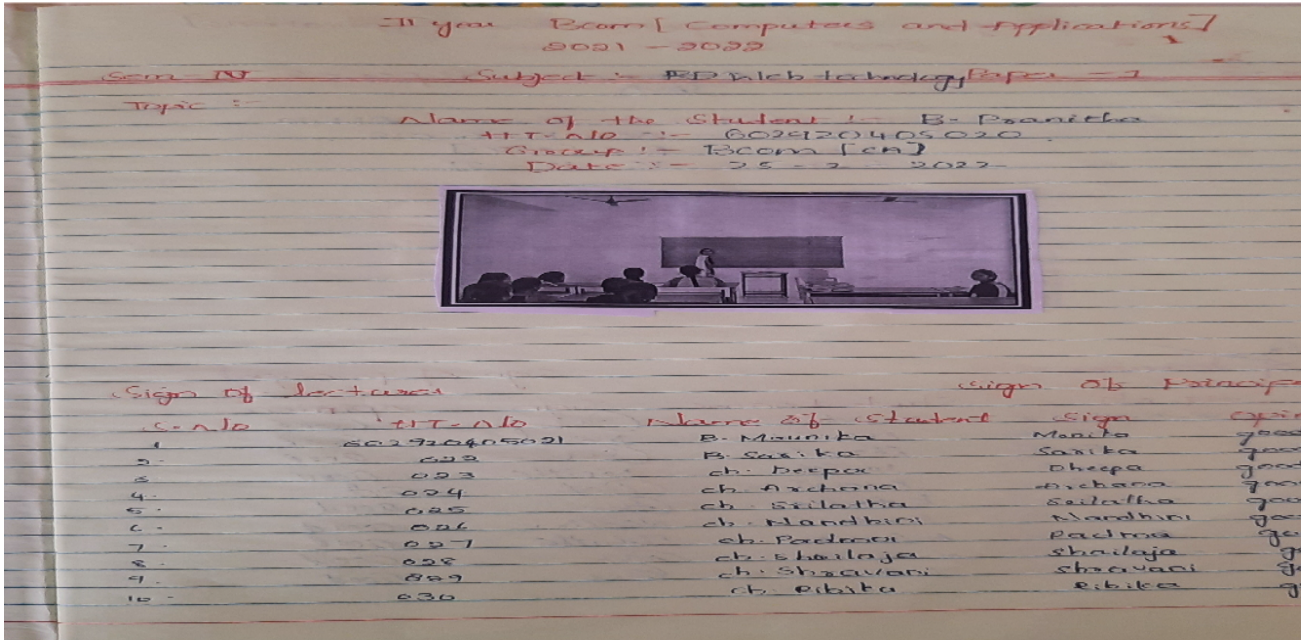 II year Bcom [Computers and Applications]
2021 - 2022
Sem - IV Subject :- Web technology Paper - 1
Topic :-
Name of the Student :- B. Pranitha
HT. No :- 602920405020
Group :- Bcom [CA]
Date :- 25 - 2 - 2022
Sign of lecturer Sign of
S. No HT. No Name of Student Sign
1 602920405021 B. Mounika Monika
2. 022 B. Sarika Sarika
3 023 ch. Deepa Dheepa
4. 024 ch. Archana Archana
5. 025 ch. Srilatha Srilatha
6. 026 ch. Nandhini Nandhini
7 027 ch. Padma Padma
8. 028 ch. Shailaja Shailaja
9. 029 ch. Shravani Shravani
10. 030 ch. Ribika Ribika